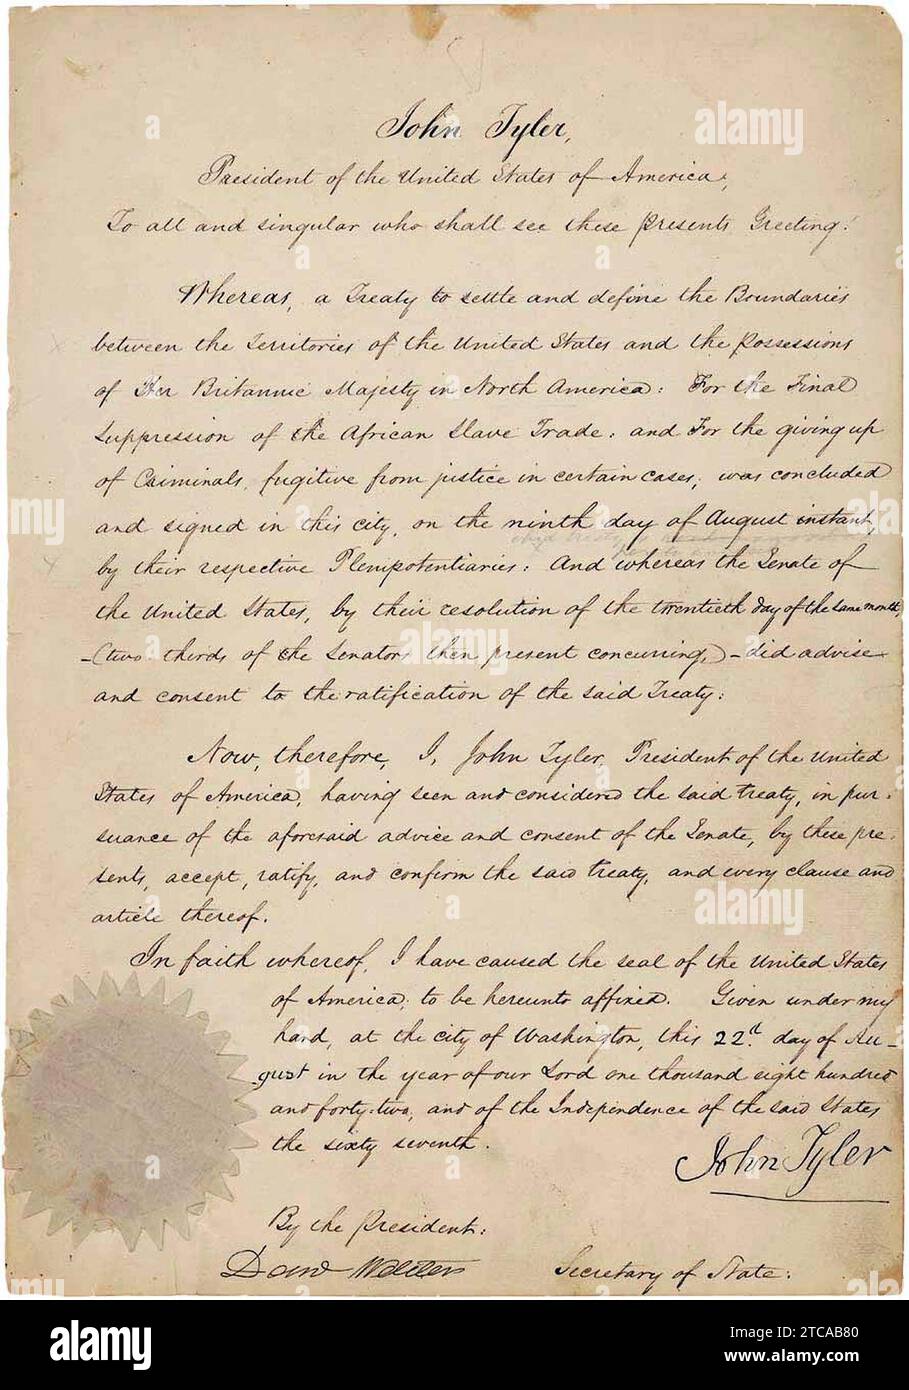 John Tyler,
President of the United States of America,
To all and singular who shall see these presents, Greeting:
Whereas, a Treaty to settle and define the Boundaries
between the Territories of the United States and the possessions
of Her Britannic Majesty in North America: For the Final
Suppression of the African Slave Trade: and For the giving up
of Criminals, fugitive from justice in certain cases, was concluded
and signed in this city, on the ninth day of August instant,
by their respective Plenipotentiaries: And whereas the Senate of
the United States, by their resolution of the twentieth day of the same month,
-(two thirds of the Senators then present concurring,)- did advise
and consent to the ratification of the said Treaty:
Now, therefore, I, John Tyler, President of the United
States of America, having seen and considered the said treaty, in pur-
suance of the aforesaid advice and consent of the Senate, by these pre-
sents, accept, ratify, and confirm the said treaty, and every clause and
article thereof.
In faith whereof, I have caused the seal of the United States
of America, to be hereunto affixed. Given under my
hand, at the city of Washington, this 22d. day of Au-
gust in the year of our Lord one thousand eight hundred
and forty-two, and of the Independence of the said States
the sixty seventh.
John Tyler
By the President:
Danl Webster
Secretary of State:
alamy
alamy
alamy
alamy
alamy
a
a
a
a
alamy
Image ID: 2TCAB80
www.alamy.com